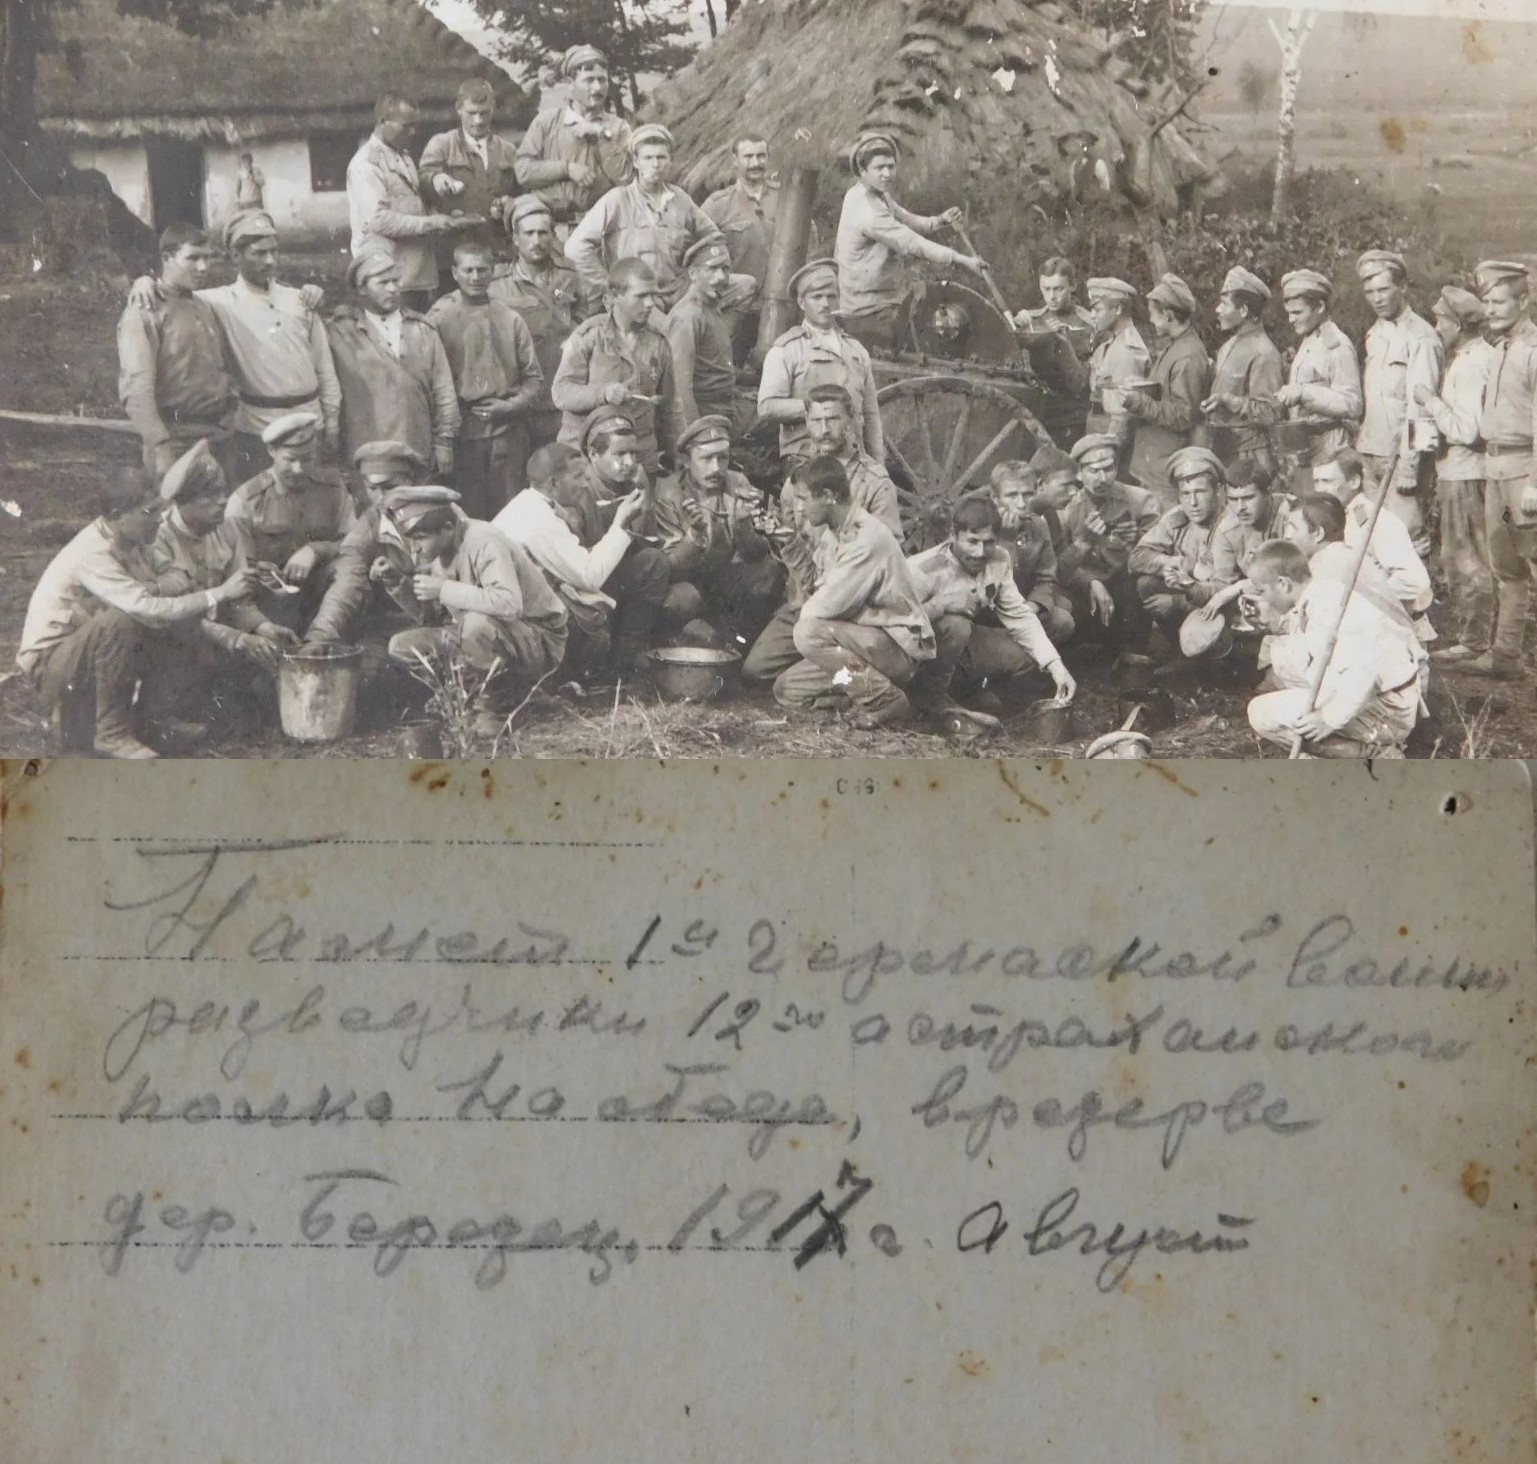 Памят 1ой Германской войны
разведчики 12го астраханского
полка на обеде, в резерве
дер. Березец, 1917 г. август